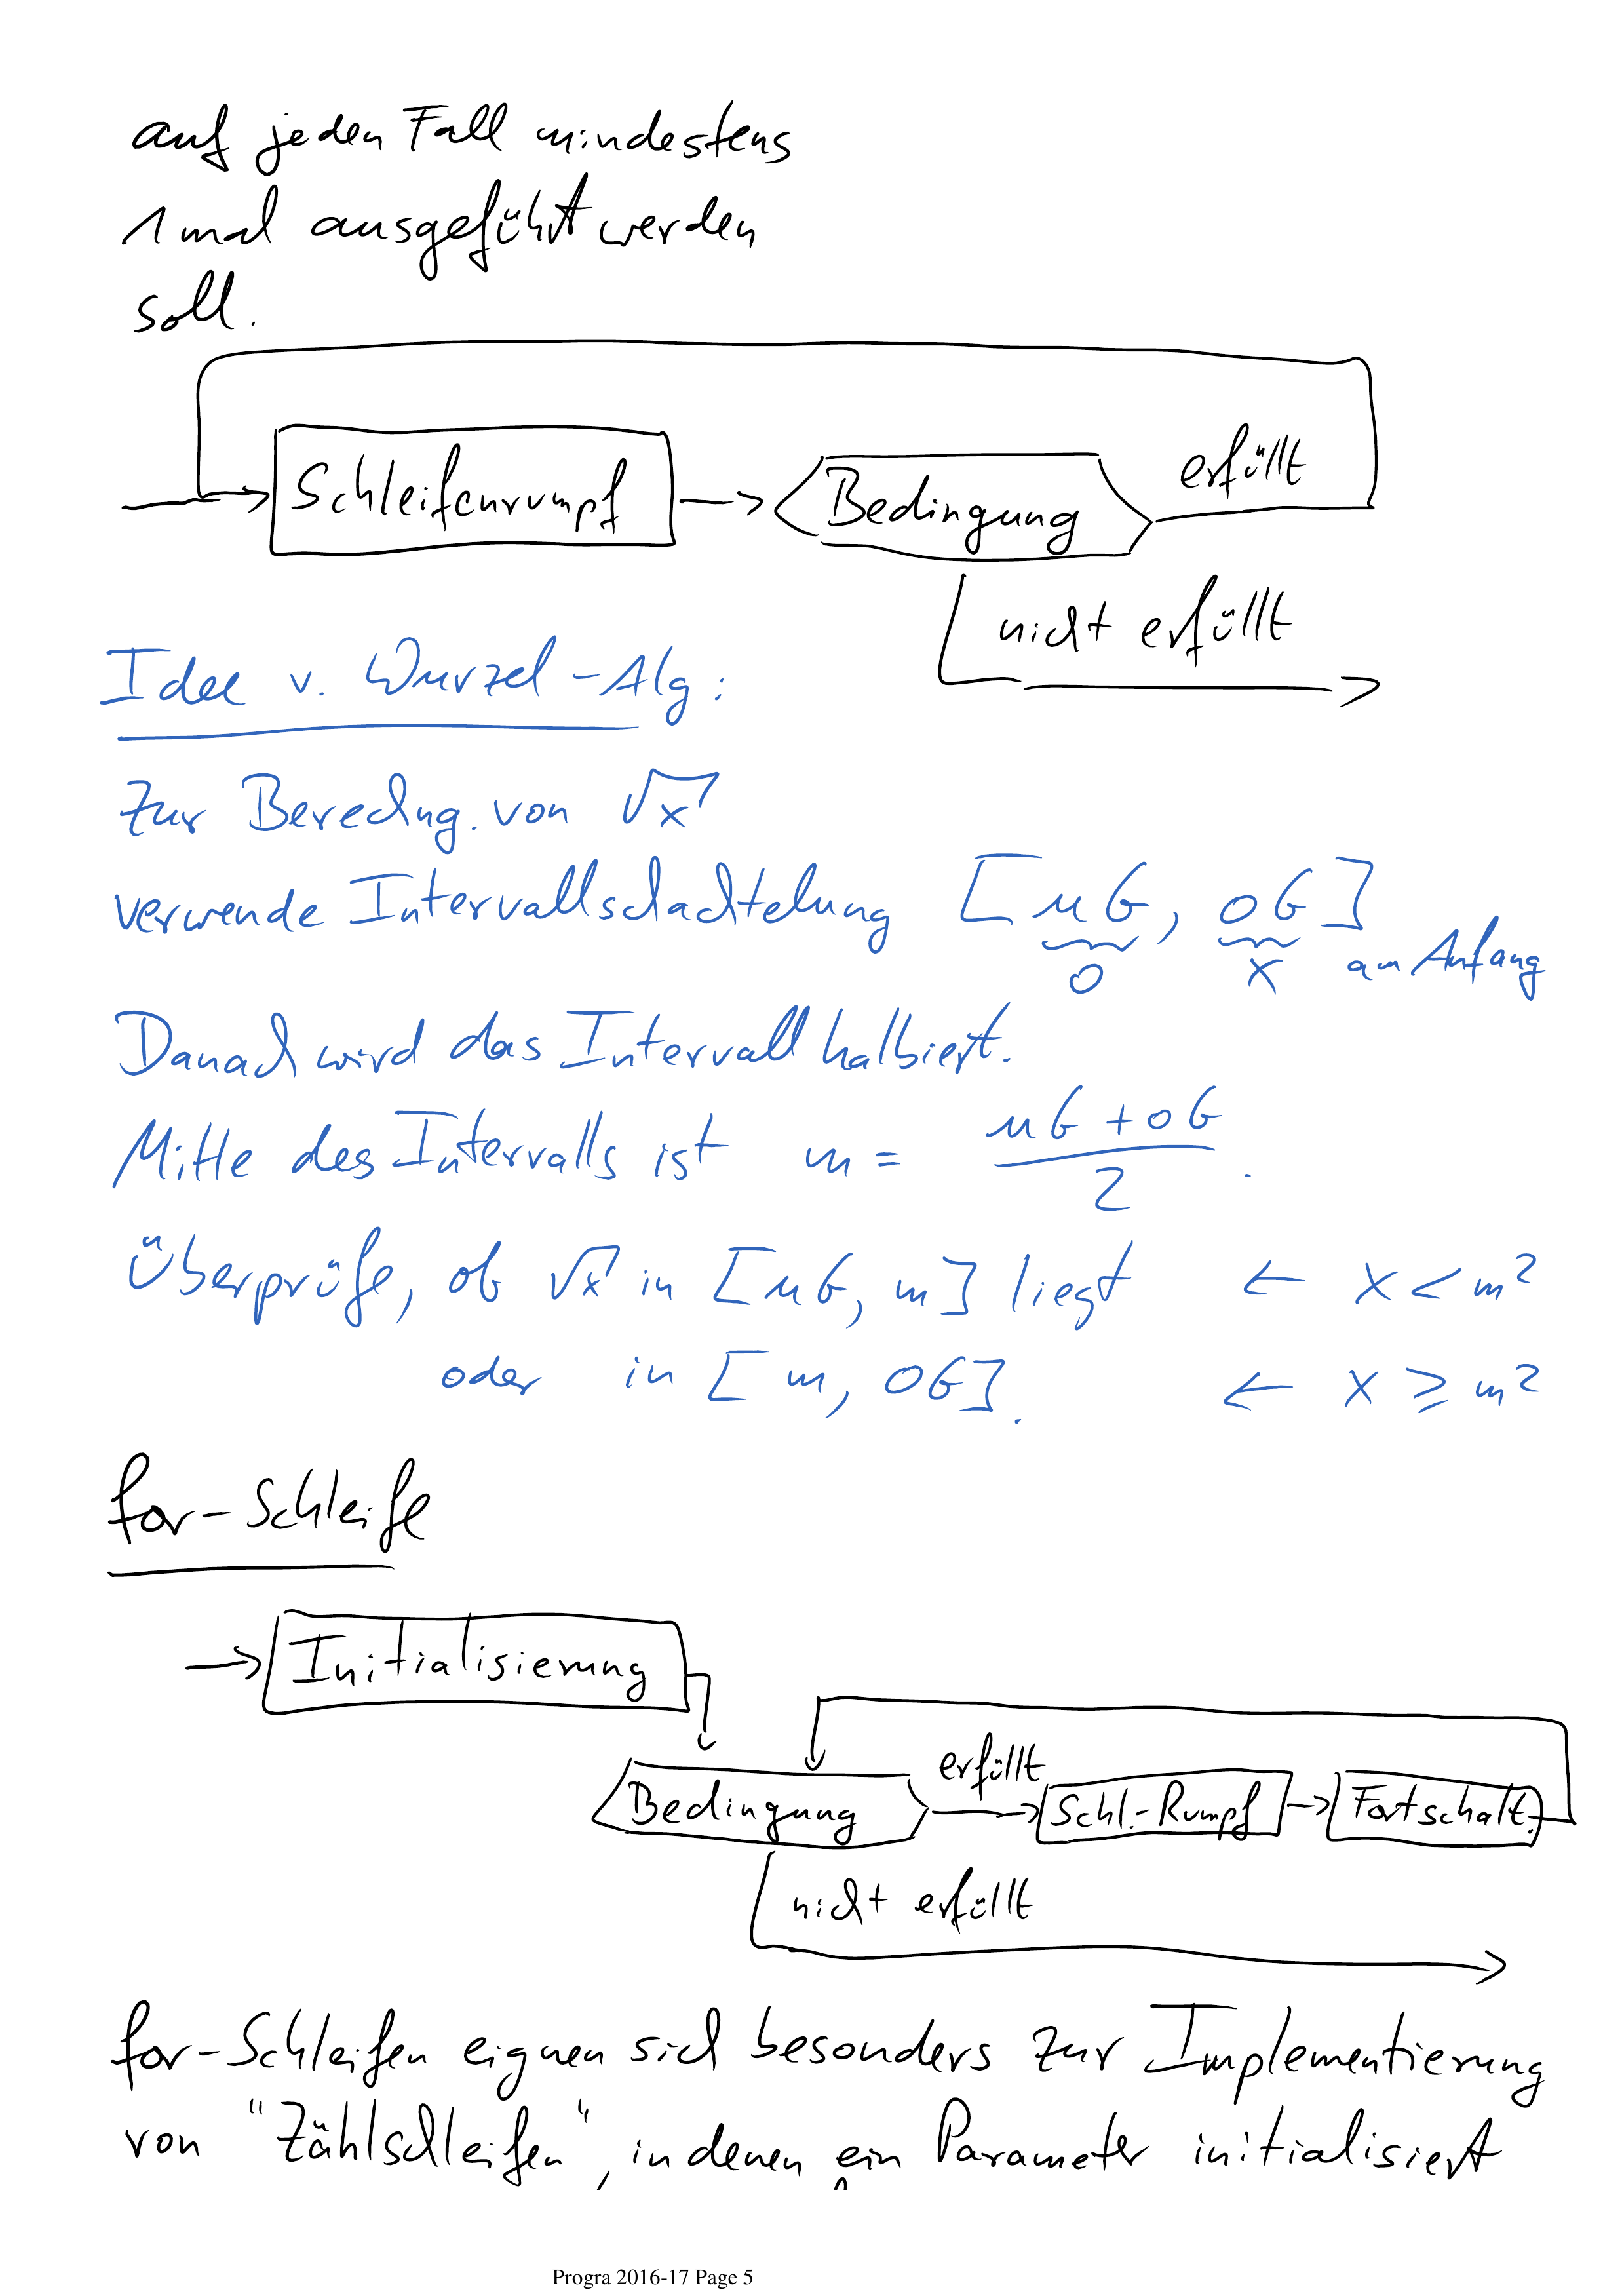 auf jeden Fall mindestens
1mal ausgeführt werden
soll.
Schleifenrumpf
Bedingung
erfüllt
nicht erfüllt
Idee v. Wurzel-Alg:
Zur Berechng. von √x
verwende Intervallschachtelung [uG, oG]
0 x am Anfang
Danach wird das Intervall halbiert.
Mitte des Intervalls ist m = (uG + oG)/2.
Überprüfe, ob √x in [uG, m] liegt ← x < m²
oder in [m, oG]. ← x ≥ m²
for-Schleife
Initialisierung
Bedingung erfüllt Schl.-Rumpf Fortschalt.
nicht erfüllt
for-Schleifen eignen sich besonders zur Implementierung
von "Zählschleifen", in denen ein Parameter initialisiert
Progra 2016-17 Page 5